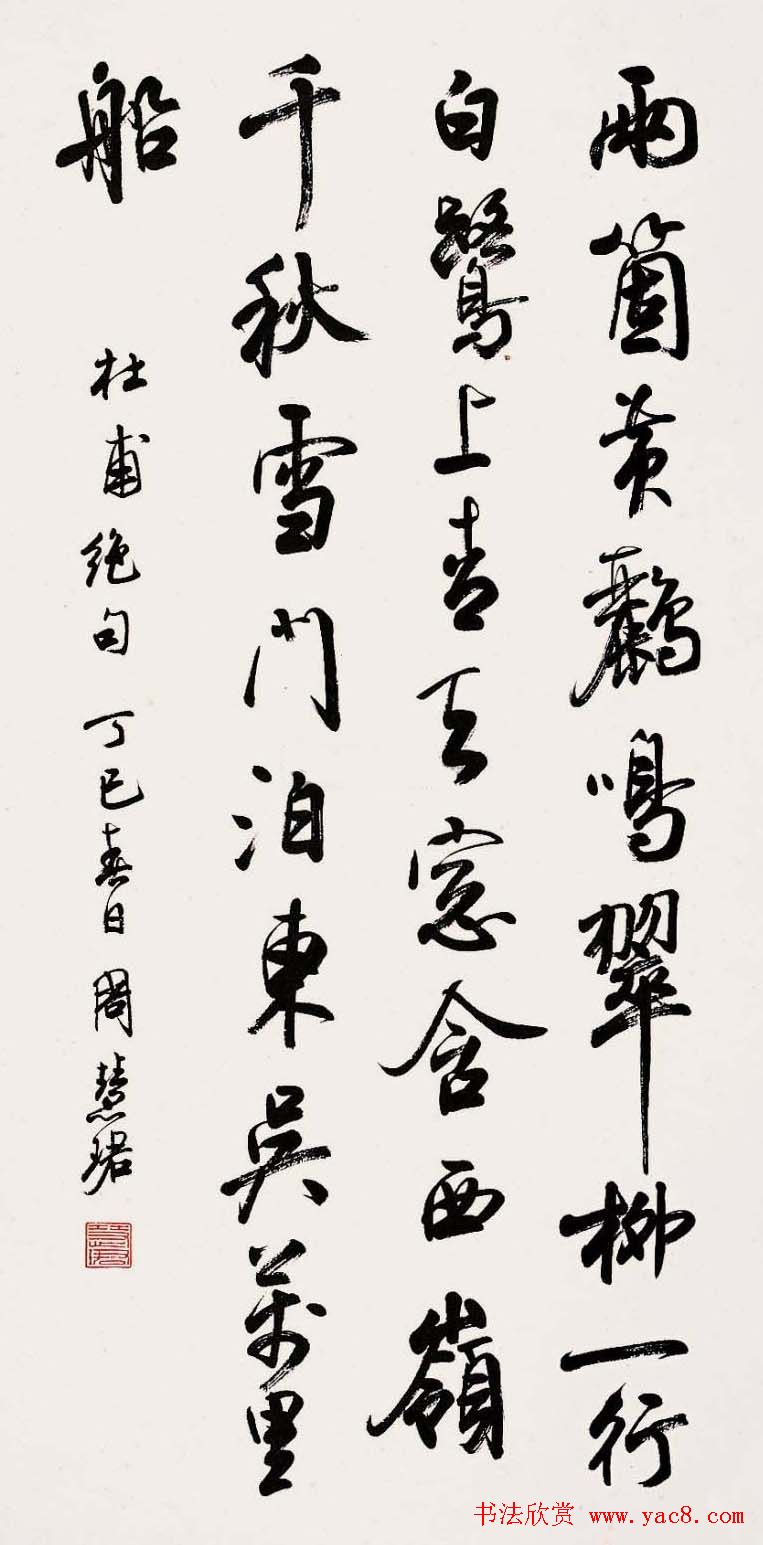 兩箇黄鸝鳴翠柳一行
白鷺上青天窓含西嶺
千秋雪門泊東吳萬里
船
杜甫絶句丁巳春日周慧珺
书法欣赏 www.yac8.com